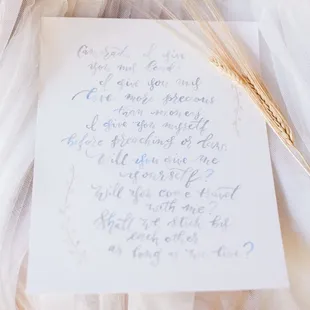 Camerado, I give
you my hand!
I give you my
love more precious
than money
I give you myself
before preaching or law;
Will you give me
yourself?
Will you come travel
with me?
Shall we stick by
each other
as long as we live?